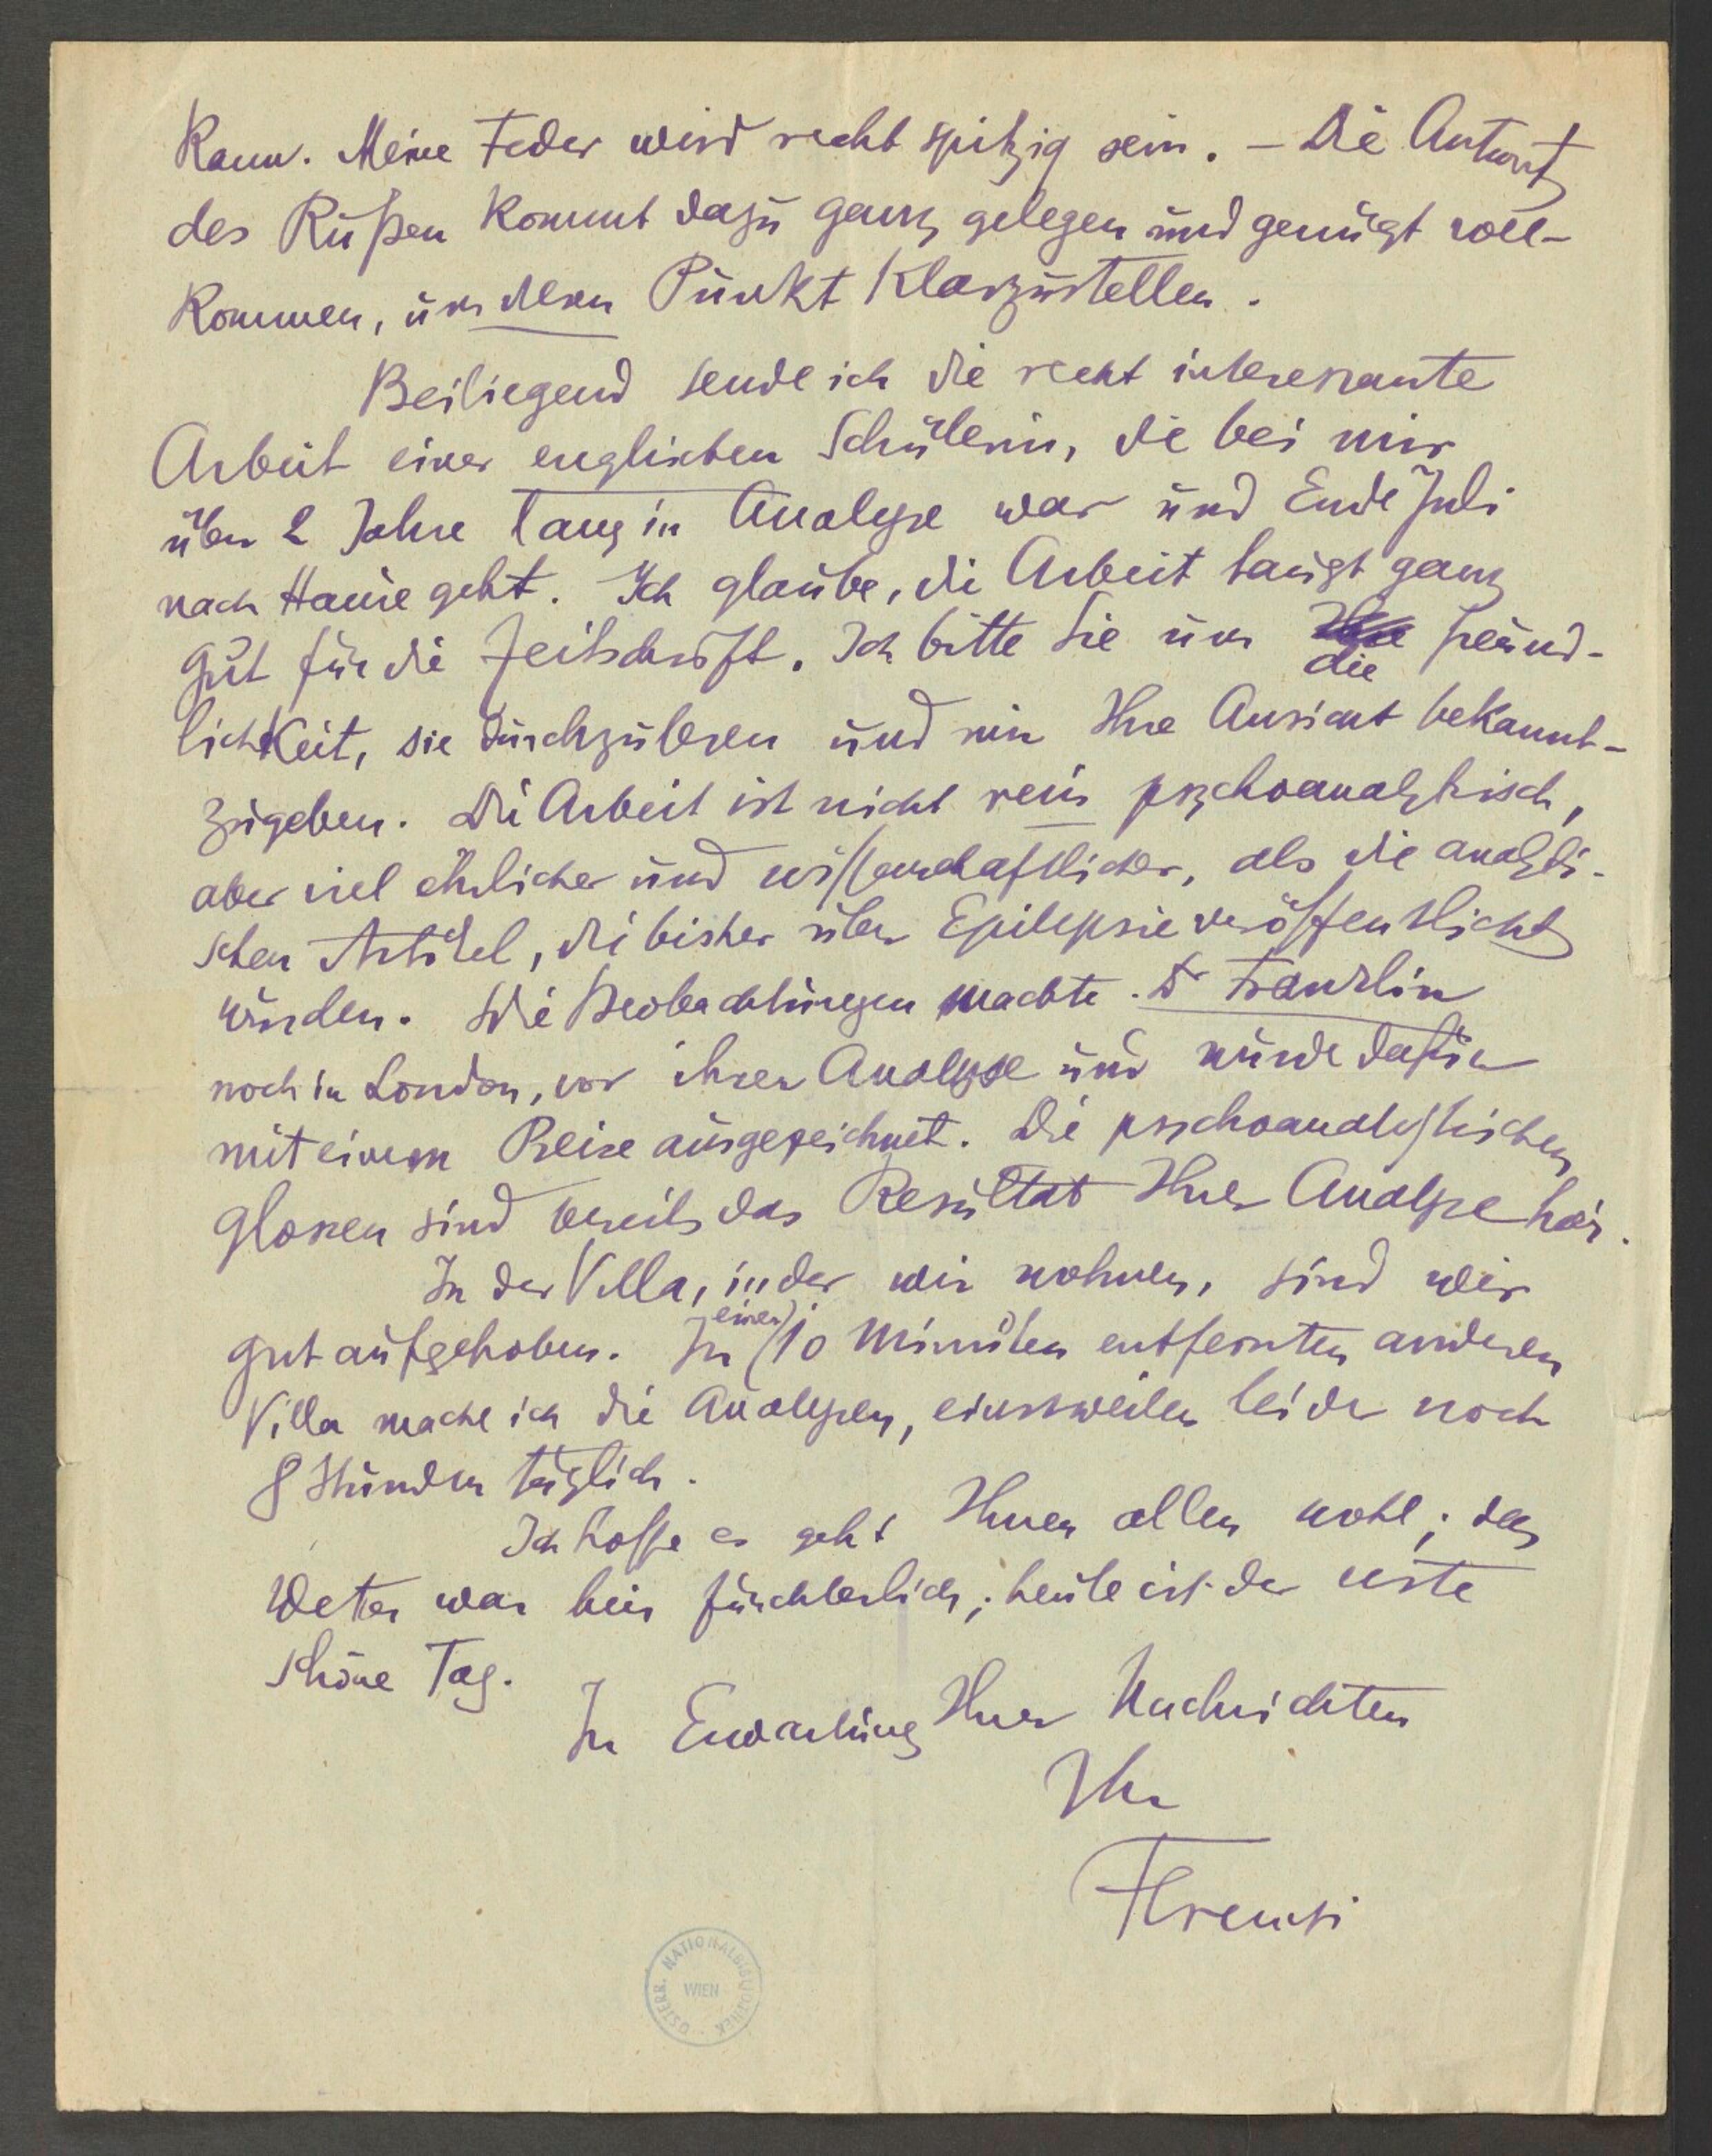 kann. Meine Feder wird recht spitzig sein. – Die Antwort
des Rußen kommt dazu ganz gelegen und genügt voll-
kommen, um den Punkt klarzustellen.
Beiliegend sende ich die recht interessante
Arbeit einer englischen Schülerin, die bei mir
über 2 Jahre lang in Analyse war und Ende Juli
nach Hause geht. Ich glaube, die Arbeit taugt ganz
gut für die Zeitschrift. Ich bitte Sie um die freund-
lichkeit, sie durchzulesen und mir Ihre Ansicht bekannt-
zugeben. Die Arbeit ist nicht rein psychoanalytisch,
aber viel ehrlicher und wissenschaftlicher, als die analyti-
schen Artikel, die bisher über Epilepsie veröffentlicht
wurden. Die Beobachtungen machte Dr
noch in London, vor ihrer Analyse und wurde dafür
mit einem Preise ausgezeichnet. Die psychoanalytischen
Glossen sind bereits das Resultat Ihrer Analyse hier.
In der Villa, in der wir wohnen, sind wir
gut aufgehoben. In einer 10 Minuten entfernten anderen
Villa mache ich die Analysen, einstweilen leider noch
8 Stunden täglich.
Ich hoffe es geht Ihnen allen wohl; das
Wetter war hier fürchterlich; heute ist der erste
schöne Tag.
In Erwartung Ihrer Nachrichten
Ihr
Ferenczi
ÖSTERR. NATIONALBIBLIOTHEK
WIEN